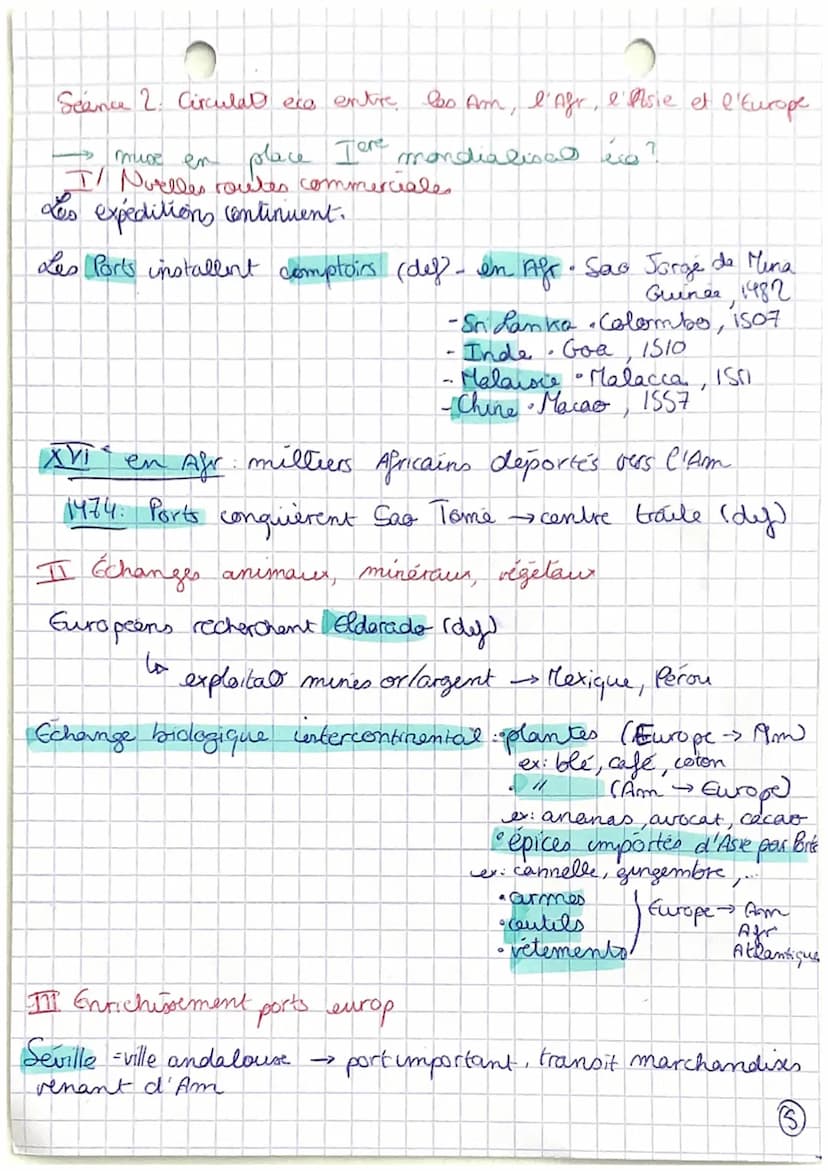 Séance 2: Circulat° éco entre les Am, l'Afr, l'Asie et l'Europe
→ mise en place Iere mondialisat° éco?
I/ Nvelles routes commerciales
Les expéditions continuent.
Les Ports installent comptoirs (def) - en Afr • Sao Jorge da Mina
Guinée, 1482
- Sri Lanka • Colombo, 1507
- Inde • Goa, 1510
- Malaisie • Malacca, 1511
- Chine • Macao, 1557
XVIe en Afr : milliers Africains déportés vers l'Am
1474: Ports conquièrent Sao Tomé → centre traite (def)
II Echanges animaux, minéraux, végétaux
Européens recherchent Eldorado (def)
↳ exploitat° mines or/argent → Mexique, Pérou
Echange biologique intercontinental : plantes (Europe → Am)
ex: blé, café, coton
• " (Am → Europe)
ex: ananas, avocat, cacao
• épices importés d'Asie par
ex: cannelle, gingembre,...
• armes
• outils
• vêtements
Europe → Am
Afr
Atlantique
III Enrichissement ports europ
Séville = ville andalouse → port important, transit marchandises
venant d'Am
5